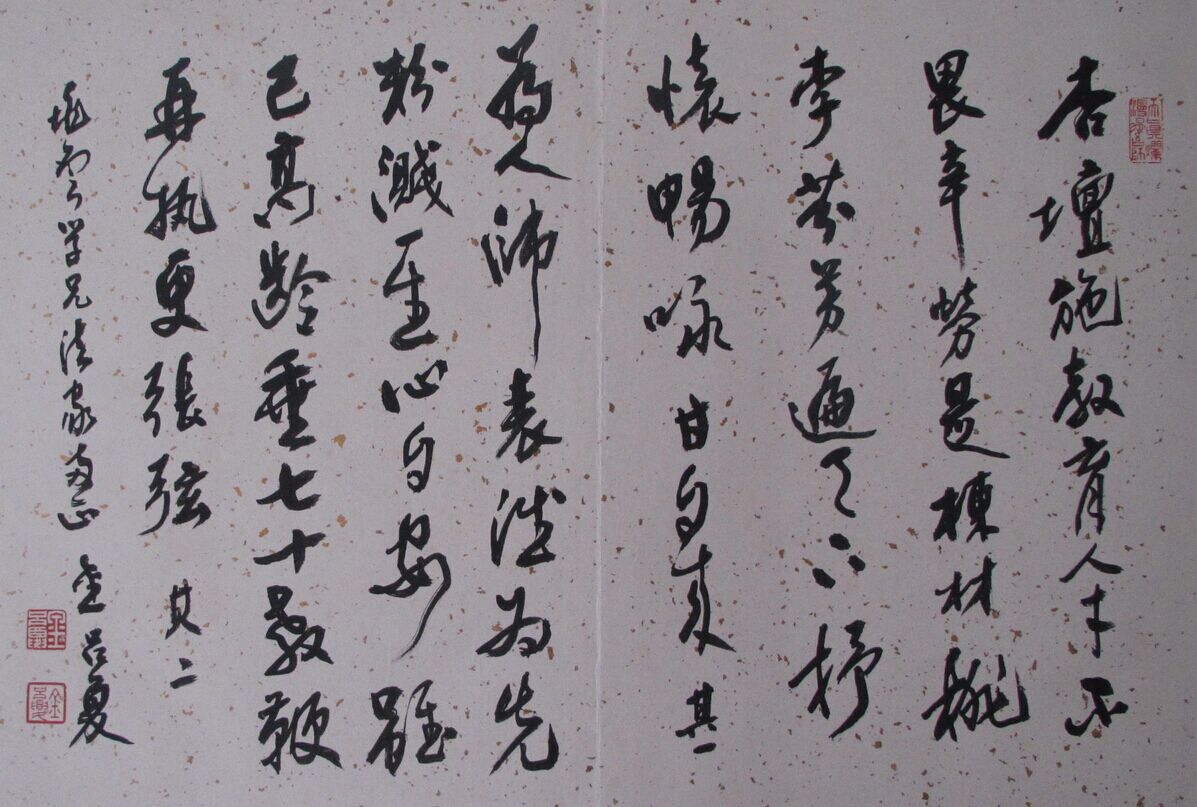 杏壇施教育人才不
畏辛勞是棟材桃
李芬芳遍天下抒
懷暢咏甘自来 其一
為人師表德为先
粉濺一生心自安雖
已高齡垂七十教鞭
再執更張弦 其二
学兄法家两正 金吕夏